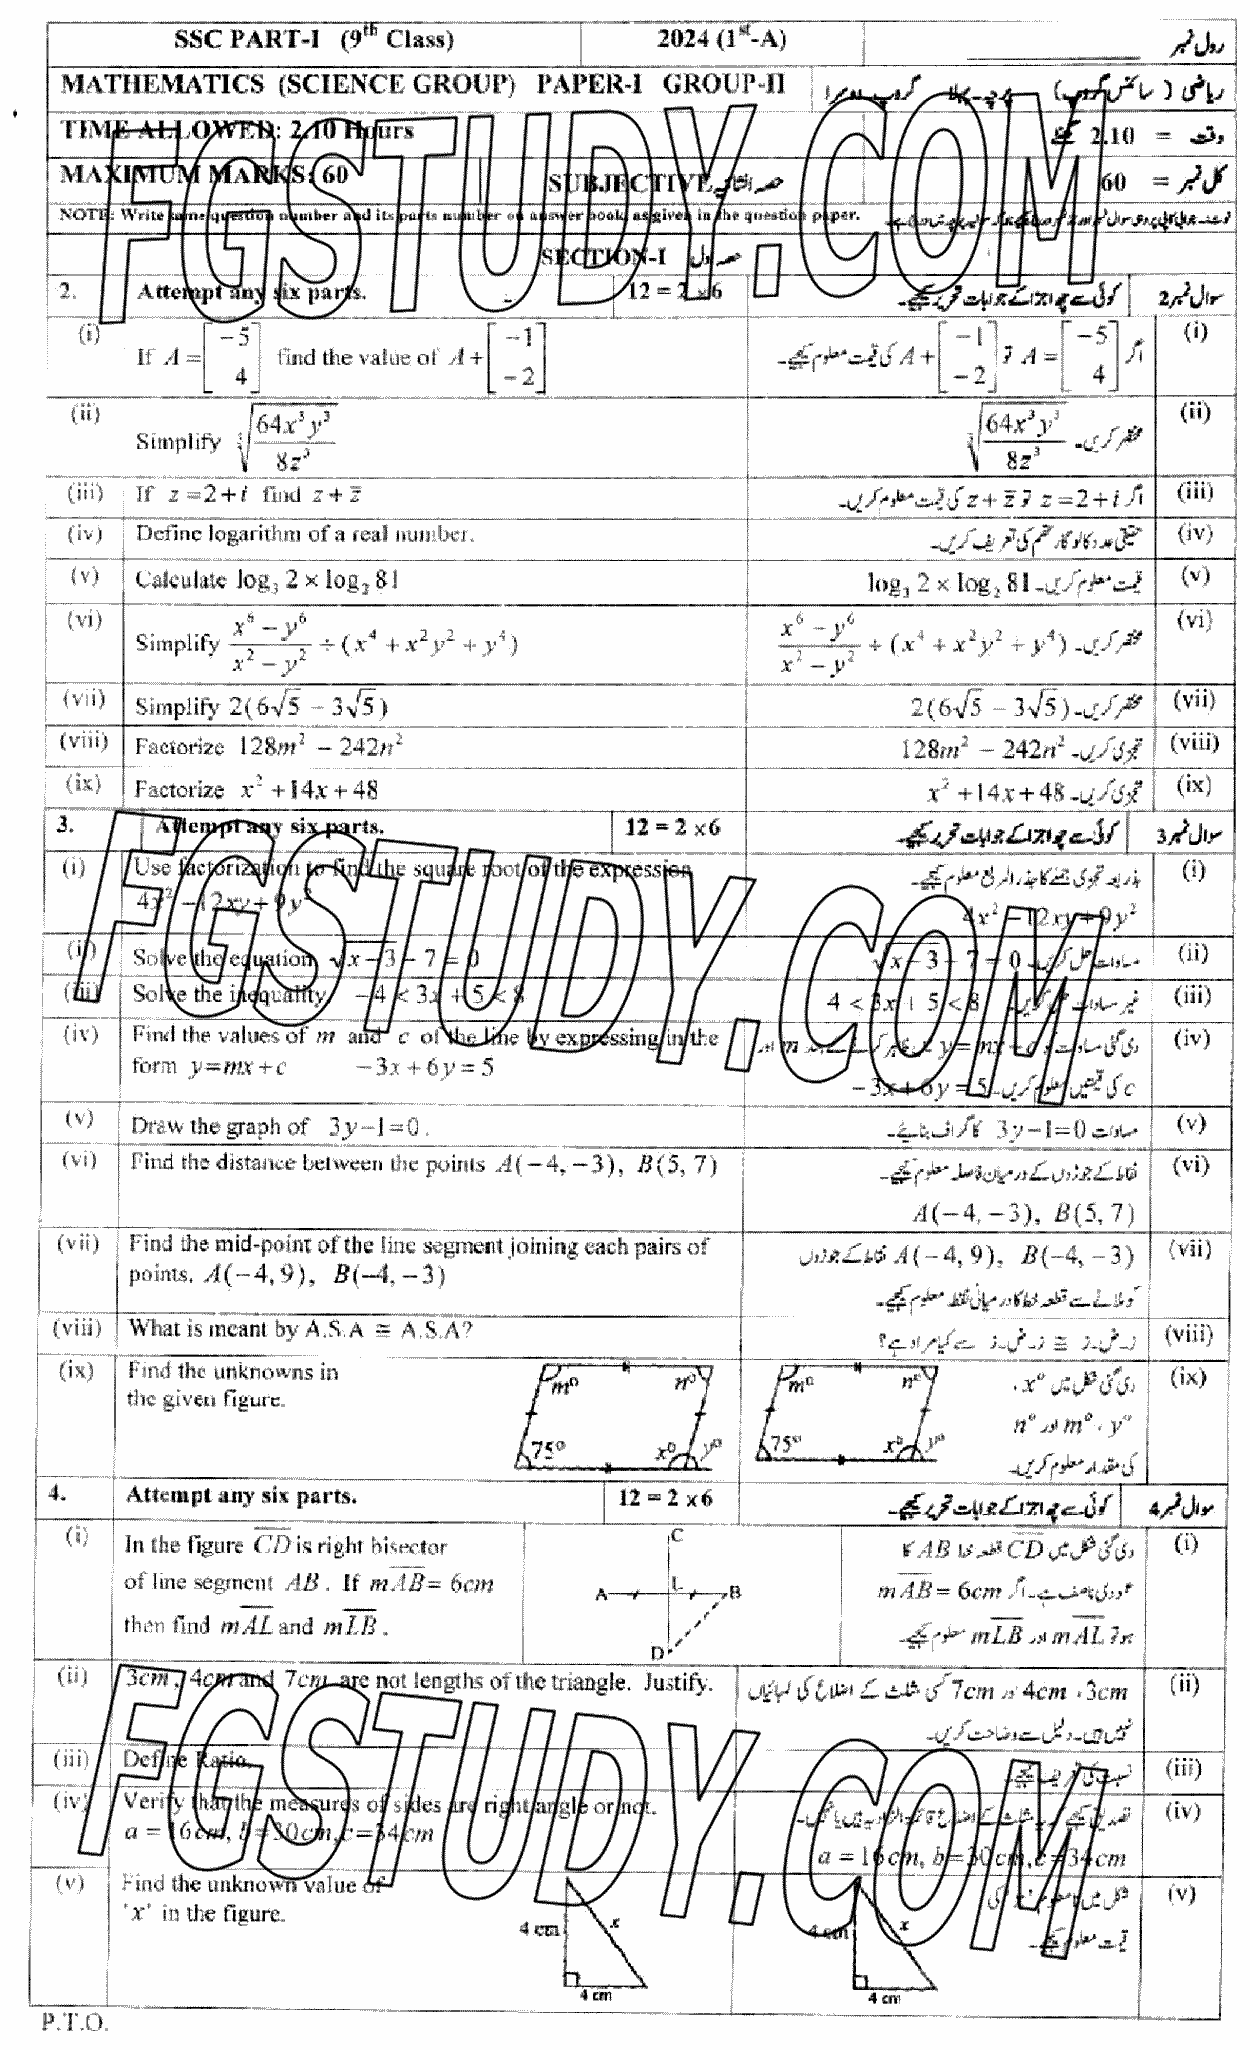 SSC PART-I (9th Class) 2024 (1st-A) رول نمبر
MATHEMATICS (SCIENCE GROUP) PAPER-I GROUP-II ریاضی ( سائنس گروپ)
TIME ALLOWED: 2.10 Hours وقت = 2.10 گھنٹے
MAXIMUM MARKS: 60 SUBJECTIVE حصہ انشائیہ کل نمبر = 60
NOTE: Write same question number and its parts number on answer book, as given in the question paper.
SECTION-I حصہ اول
2. Attempt any six parts. 12 = 2 × 6 کوئی سے چھ اجزا کے جوابات تحریر کیجئے۔ سوال نمبر 2
(i) If A = [−5 4] find the value of A + [−1 −2] اگر A = [−5 4] تو A + [−1 −2] کی قیمت معلوم کیجئے۔ (i)
(ii) Simplify ∛(64x³y³/8z³) مختصر کریں۔ ∛(64x³y³/8z³) (ii)
(iii) If z = 2 + i find z + z̅ اگر z = 2 + i تو z + z̅ کی قیمت معلوم کریں۔ (iii)
(iv) Define logarithm of a real number. حقیقی عدد کا لوگارتھم کی تعریف کریں۔ (iv)
(v) Calculate log₃ 2 × log₂ 81 قیمت معلوم کریں۔ log₃ 2 × log₂ 81 (v)
(vi) Simplify (x⁶ − y⁶)/(x² − y²) ÷ (x⁴ + x²y² + y⁴) مختصر کریں۔ (x⁶ − y⁶)/(x² − y²) ÷ (x⁴ + x²y² + y⁴) (vi)
(vii) Simplify 2(6√5 − 3√5) مختصر کریں۔ 2(6√5 − 3√5) (vii)
(viii) Factorize 128m² − 242n² تجزی کریں۔ 128m² − 242n² (viii)
(ix) Factorize x² + 14x + 48 تجزی کریں۔ x² + 14x + 48 (ix)
3. Attempt any six parts. 12 = 2 × 6 کوئی سے چھ اجزا کے جوابات تحریر کیجئے۔ سوال نمبر 3
(i) Use factorization to find the square root of the expression بذریعہ تجزی جملے کا جذر المربع معلوم کیجئے۔ (i)
4x² − 12xy + 9y² 4x² − 12xy + 9y²
(ii) Solve the equation √(x − 3) − 7 = 0 مساوات حل کریں۔ √(x − 3) − 7 = 0 (ii)
(iii) Solve the inequality −4 < 3x + 5 < 8 غیر مساوات حل کریں۔ 4 < 3x + 5 < 8 (iii)
(iv) Find the values of m and c of the line by expressing in the (iv)
form y = mx + c −3x + 6y = 5 c کی قیمتیں معلوم کریں۔ −3x + 6y = 5
(v) Draw the graph of 3y − 1 = 0. مساوات 3y − 1 = 0 کا گراف بنائیے۔ (v)
(vi) Find the distance between the points A(−4, −3), B(5, 7) نقاط کے جوڑوں کے درمیان فاصلہ معلوم کیجئے۔ (vi)
A(−4, −3), B(5, 7)
(vii) Find the mid-point of the line segment joining each pairs of A(−4, 9), B(−4, −3) نقاط کے جوڑوں (vii)
points. A(−4, 9), B(−4, −3) کو ملانے سے قطعہ خط کا درمیانی نقطہ معلوم کیجئے۔
(viii) What is meant by A.S.A ≅ A.S.A? ز۔ض۔ز ≅ ز۔ض۔ز سے کیا مراد ہے؟ (viii)
(ix) Find the unknowns in m° n° m° n° دی گئی شکل میں x°، (ix)
the given figure. n° اور m° ، y°
75° x° y° 75° x° y° کی مقدار معلوم کریں۔
4. Attempt any six parts. 12 = 2 × 6 کوئی سے چھ اجزا کے جوابات تحریر کیجئے۔ سوال نمبر 4
(i) In the figure C̅D̅ is right bisector C دی گئی شکل میں C̅D̅ قطعہ خط AB کا (i)
of line segment AB. If mA̅B̅ = 6cm A L B عمودی ناصف ہے۔ اگر mA̅B̅ = 6cm
then find mA̅L̅ and mL̅B̅. D ہو تو mA̅L̅ اور mL̅B̅ معلوم کیجئے۔
(ii) 3cm, 4cm and 7cm are not lengths of the triangle. Justify. 3cm، 4cm اور 7cm کسی مثلث کے اضلاع کی لمبائیاں (ii)
نہیں ہیں۔ دلیل سے وضاحت کریں۔
(iii) Define Ratio. نسبت کی تعریف کیجئے۔ (iii)
(iv) Verify that the measures of sides are right angle or not. (iv)
a = 16cm, b = 30cm, c = 34cm a = 16cm, b = 30cm, c = 34cm
(v) Find the unknown value of شکل میں نامعلوم 'x' کی (v)
'x' in the figure. 4 cm x 4 cm x قیمت معلوم کیجئے۔
4 cm 4 cm
P.T.O.
FGSTUDY.COM
FGSTUDY.COM
FGSTUDY.COM